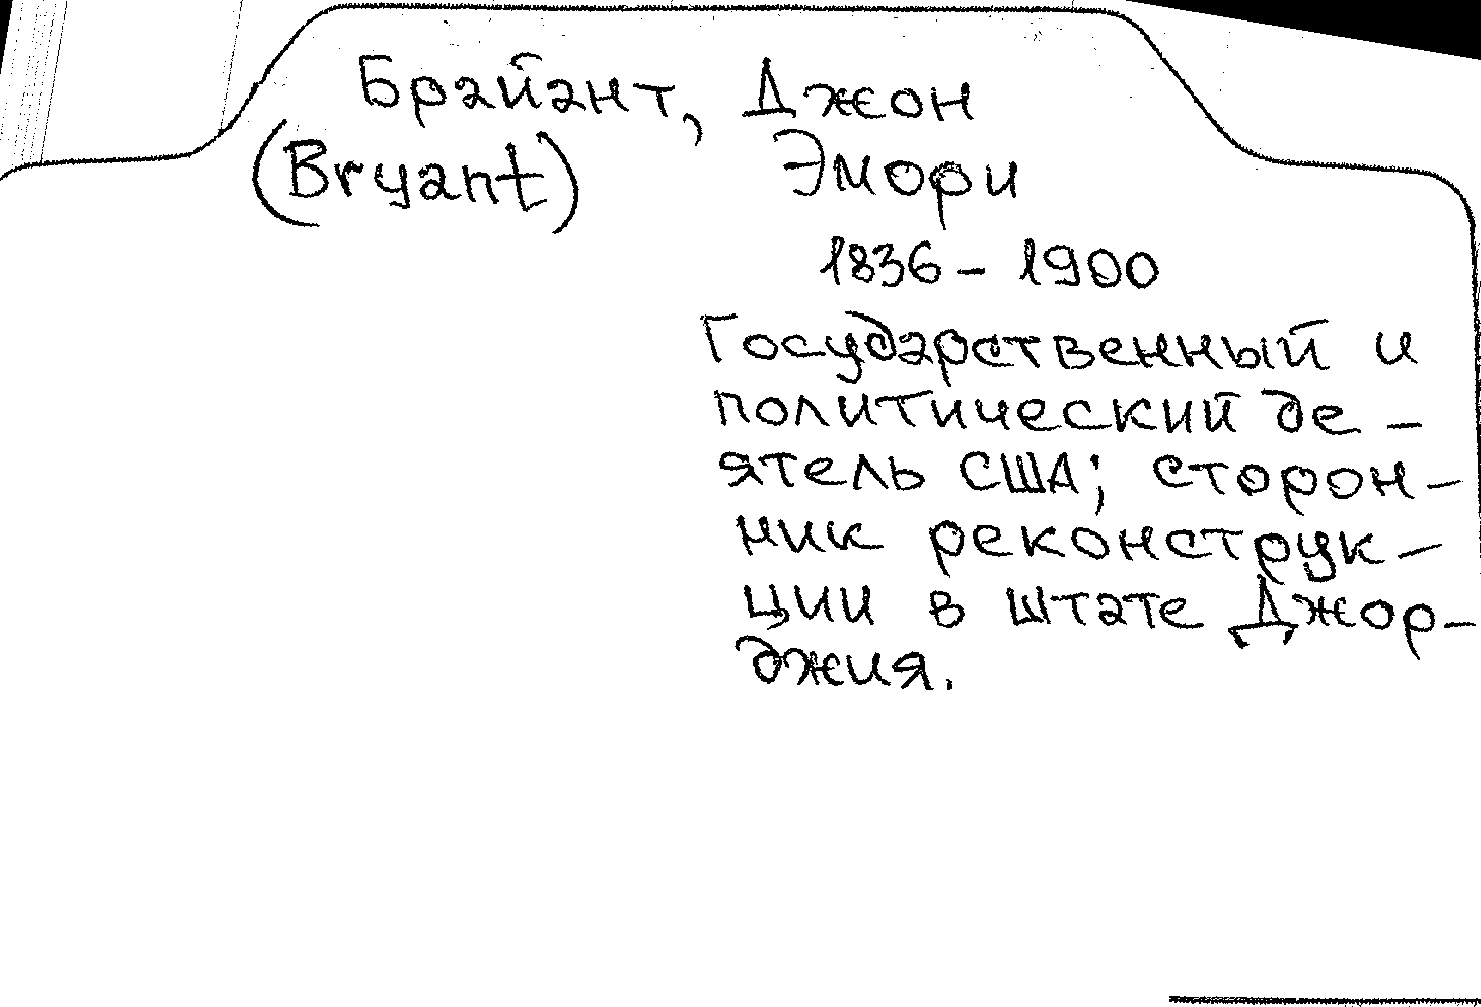 Брайант, Джон
(Bryant) Эмори
1836 - 1900
Государственный и
политический де -
ятель США; сторон-
ник реконструк-
ции в штате Джор-
джия.